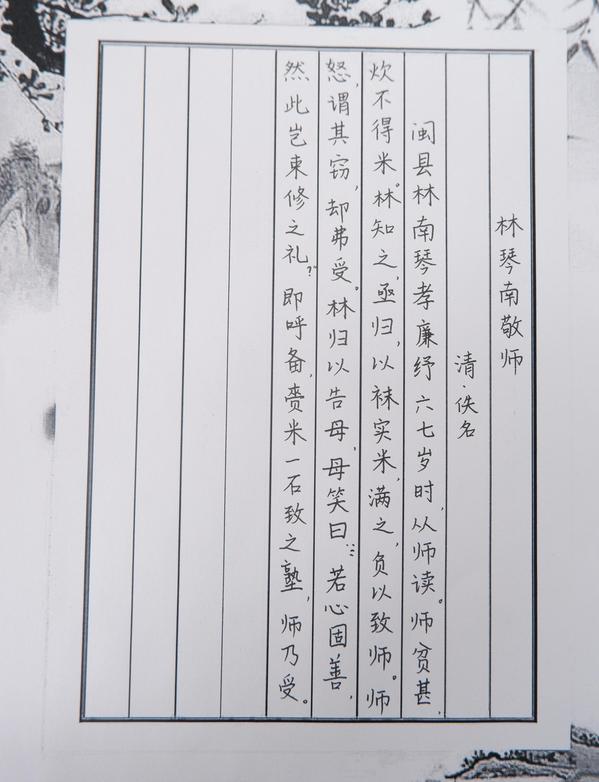 林琴南敬师
清·佚名
闽县林南琴孝廉纾六七岁时，从师读。师贫甚，
炊不得米。林知之，亟归，以袜实米，满之，负以致师。师
怒，谓其窃，却弗受。林归以告母，母笑曰：“若心固善，
然此岂束修之礼？”即呼备，赍米一石致之塾，师乃受。